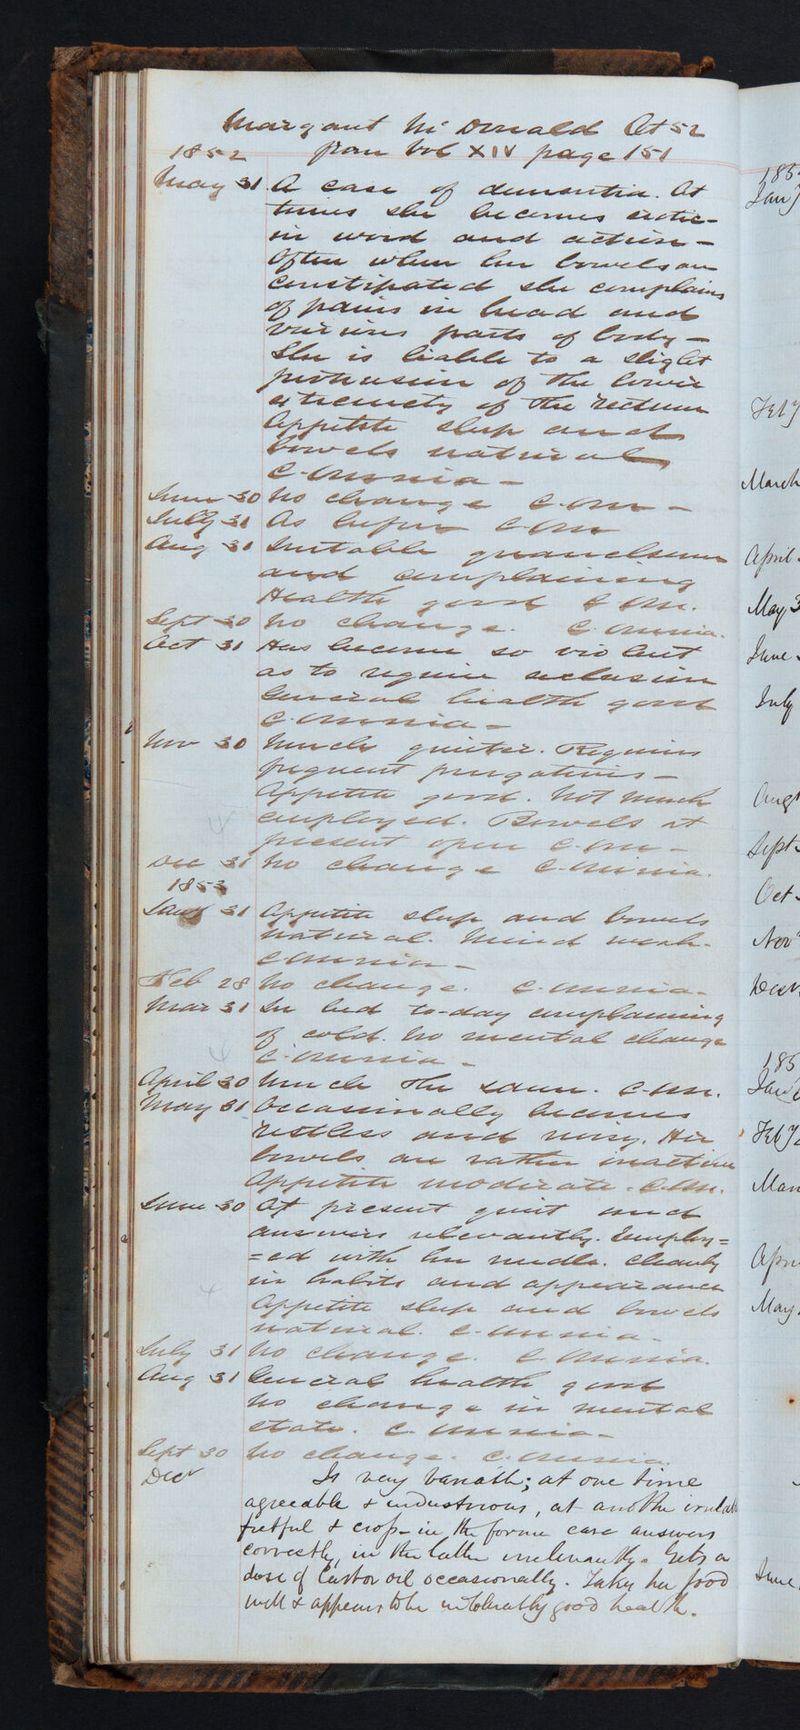 Margaret Mc Donald Aet 52
1852 from Vol XIV page 151
May 31 A case of dementia. At
times she becomes
in word and action –
Often when her bowels are
constipated she complains
of pains in head and
various parts of body –
She is liable to a slight
protrusion of the lower
extremety of the rectum
Appetite sleep and
bowels natural
C. omnia –
June 30 No change C. om –
July 31 As before C. om
Aug 31 Irritable quarrelsome
and complaining
Health good C om.
Sept 30 No change. C. omnia.
Oct 31 Has become so violent
as to require seclusion
General health good
C. omnia –
Nov 30 Much quieter. Requires
frequent purgatives –
Appetite good. Not much
employed. Bowels at
present open C. om –
Dec 31 No change C. omnia.
1853
Jany 31 Appetite sleep and bowels
natural. Mind weak.
C omnia –
Feb 28 No change. C. omnia –
Mar 31 In bed to-day complaining
of cold. No mental change
C. omnia –
April 30 Much the same. C. om.
May 31 Occasionally becomes
restless and noisy. Her
bowels are rather inactive
Appetite moderate. C. om.
June 30 At present quiet and
answers relevantly. Employ=
=ed with her needle. Cleanly
in habits and appearance
Appetite sleep and bowels
natural. C. omnia –
July 31 No change. C. omnia.
Aug 31 General health good
No change in mental
state. C. omnia –
Sept 30 No change. C. omnia.
Decr Is very variable; at one time
agreeable & industrious, at another irritable
fretful & cross – in the former case answers
correctly, in the latter irrelevantly. Gets a
dose of Castor oil occasionally. Takes her food
well & appears to be in tolerably good health.
185
Jany
Feby
March
April
May 3
June
July
Augt
Sept
Oct
Novr
Decr
185
Jany
Feby 2
Mar
Apri
May
June